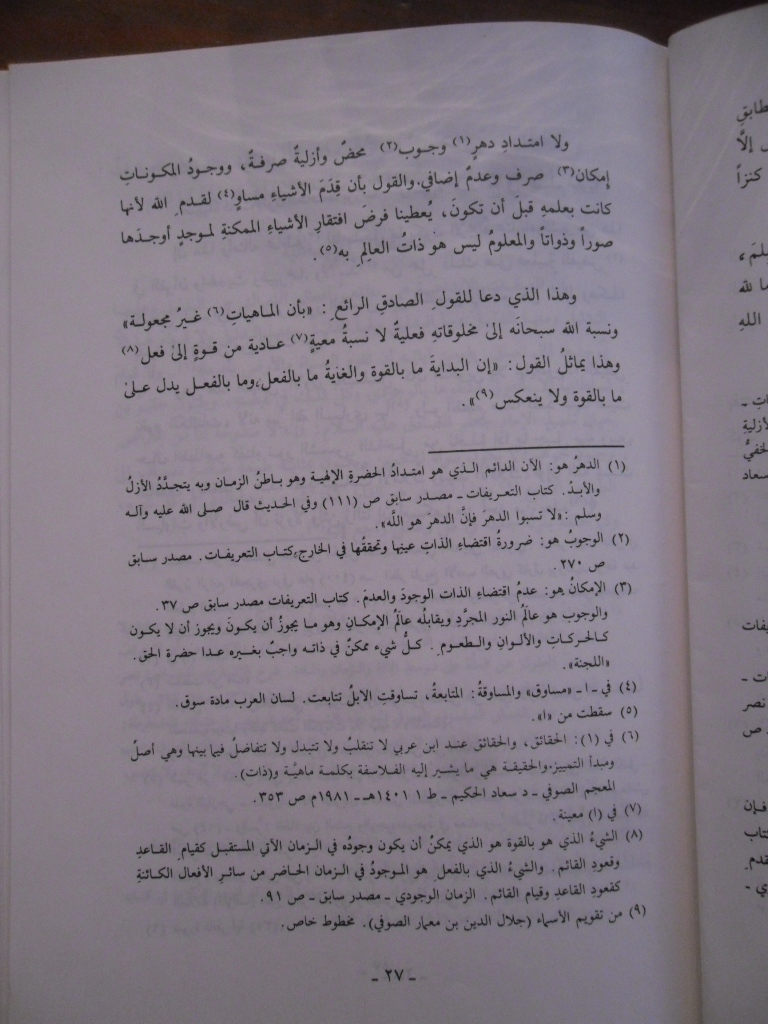 ولا امتدادِ دهرٍ(١) وجوب(٢) محضٌ وأزليةٌ صرفةٌ، ووجودُ المكونـاتِ
إمكان(٣) صرف وعدمٌ إضافي. والقول بأن قِدَمَ الأشياءِ مساوٍ(٤) لقدمِ الله لأنها
كانت بعلمهِ قبلَ أن تكونَ، يُعطينا فرضَ افتقارِ الأشياءِ الممكنةِ لمـوجدٍ أوجـدَها
صوراً وذواتاً والمعلومُ ليس هو ذاتُ العالِمِ به(٥).
وهذا الذي دعا للقولِ الصادقِ الرائعِ: «بأن المـاهياتِ(٦) غـيرُ مجعولـة»
ونسبة الله سبحانَه إلىٰ مخلوقاتهِ فعليةٌ لا نسبةُ معيةٍ(٧) عـادية من قـوةٍ إلىٰ فعل(٨)
وهذا يماثلُ القول: «إن البدايةَ ما بالقوة والغايةُ ما بالفعل، وما بالفعـل يدل عـلىٰ
ما بالقوة ولا ينعكس(٩)».
(١) الدهرُ هو: الآن الدائم الـذي هو امتدادُ الحضرةِ الإلهية وهو بـاطنُ الزمان وبه يتجدَّدُ الأزلُ
والأبـدُ. كتاب التعـريفات ـ مصـدر سابق ص (١١١) وفي الحديث قال صلى الله عليه وآلـه
وسلم: «لا تسبوا الدهرَ فإنَّ الدهرَ هو اللَّه».
(٢) الوجوبُ هو: ضرورةُ اقتضاءِ الذاتِ عينَها وتحققُها في الخارج، كتـاب التعريفـات. مصدر سـابق
ص ٢٧٠.
(٣) الإمكانُ هو: عدمُ اقتضاءِ الذات الوجودَ والعدمَ. كتاب التعريفات مصدر سابق ص ٣٧.
والوجوب هو عالَمُ النور المجرَّدِ ويقابلُه عالَمُ الإمكـانِ وهو مـا يجوزُ أن يكـونَ ويجوز أن لا يكون
كـالحركـاتِ والألوانِ والـطعومِ. كـلُّ شيء ممكنٌ في ذاتـه واجبٌ بغـيره عـدا حضرة الحق.
«اللجنة».
(٤) في ـ ا ـ «مساوق» والمساوقةُ: المتابعةُ، تساوقتِ الابلُ تتابعت. لسان العرب مادة سوق.
(٥) سقطت من «ا».
(٦) في (١): الحقائق، والحقائق عنـد ابن عربي لا تنقلبُ ولا تتبدل ولا تتفاضلُ فيما بينها وهي أصلٌ
ومبدأ التمييز. والحقيقة هي ما يشير إليه الفلاسفة بكلمـة ماهيَّة و(ذات).
المعجم الصوفي ـ د سعاد الحكيم ـ ط ١ ١٤٠١هـ ـ ١٩٨١م ص ٣٥٣.
(٧) في (ا) معينة.
(٨) الشيءُ الذي هو بالقوة هو الذي يمكنُ أن يكون وجودُه في الـزمان الآتي المستقبـل كقيامِ القـاعدِ
وقعودِ القائم. والشيءُ الذي بالفعلِ هو المـوجودُ في الـزمان الحـاضر من سائـرِ الأفعال الكـائنةِ
كقعودِ القاعدِ وقيام القائم. الزمان الوجودي ـ مصدر سابق ـ ص ٩١.
(٩) من تقويم الأسماء (جلال الدين بن معمار الصوفي). مخطوط خاص.
ـ ٢٧ ـ